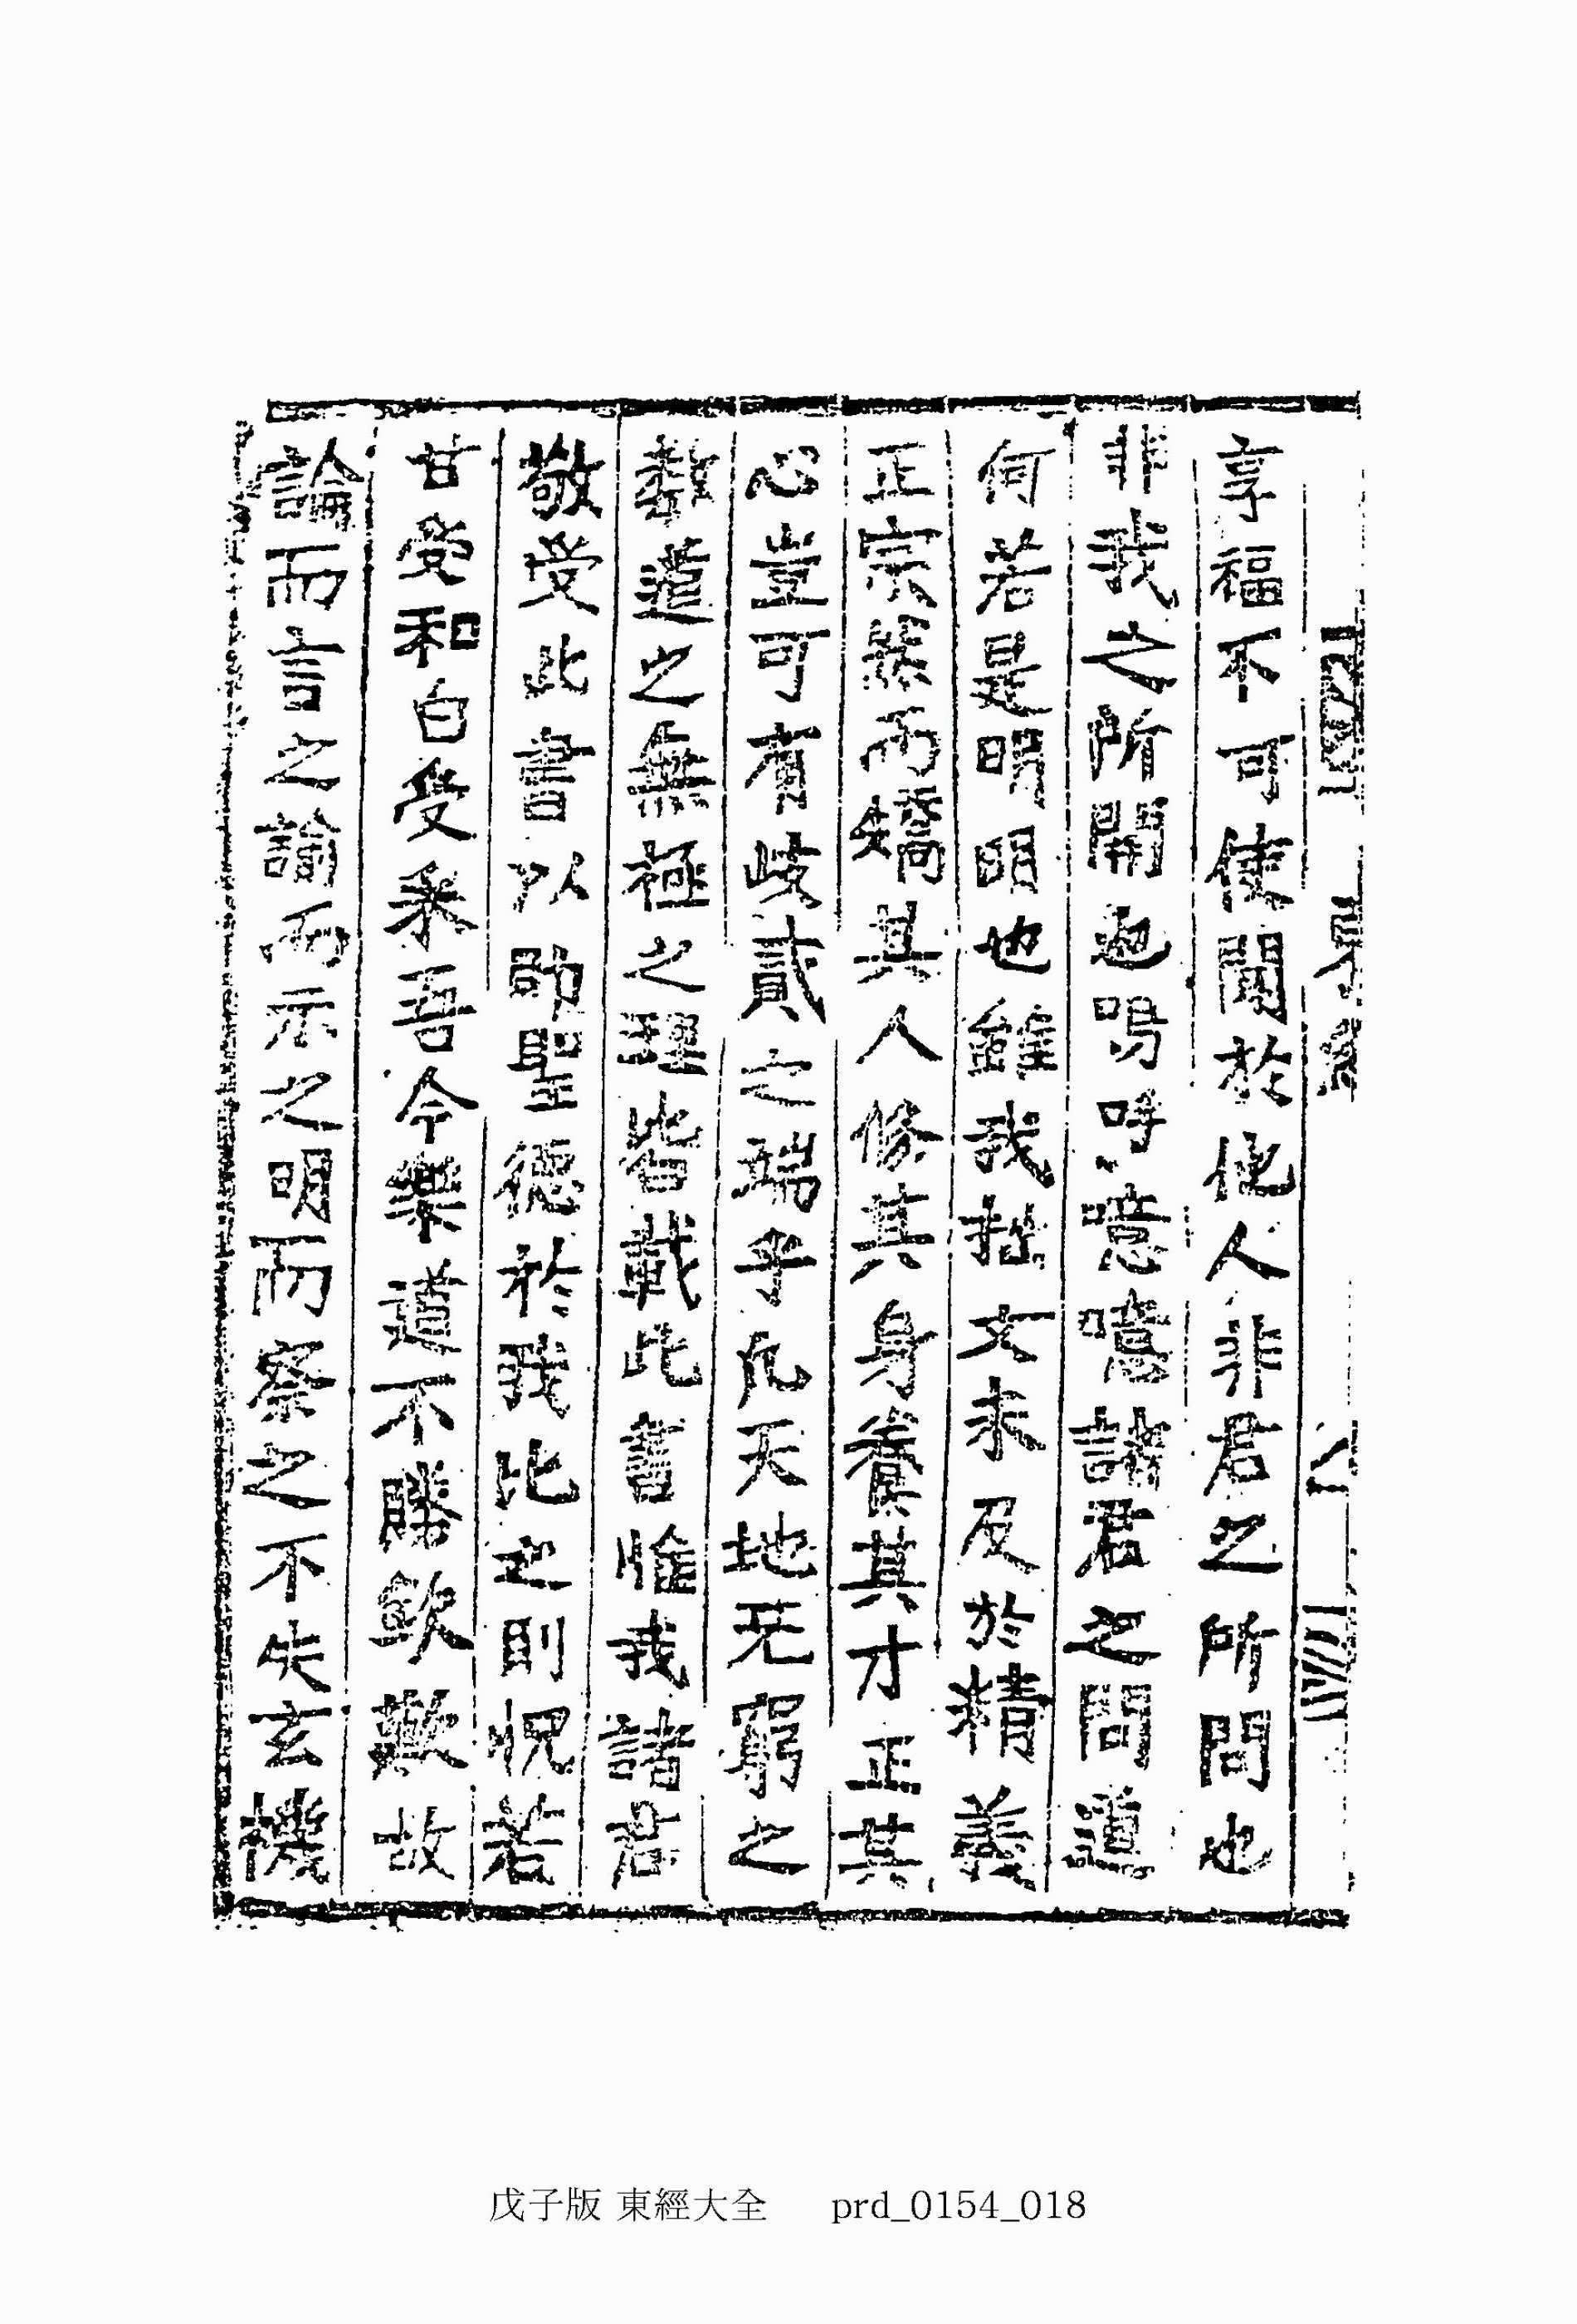 享福不可使聞於他人非君之所問也
非我之所關也嗚呼噫噫諸君之問道
何若是明明也雖我拙文未及於精義
正宗然而矯其人修其身養其才正其
心豈可有岐貳之端乎凡天地无窮之
數道之無極之理皆載此書惟我諸君
敬受此書以助聖德於我比之則怳若
甘受和白受采吾今樂道不勝歎歎故
論而言之諭而示之明而察之不失玄機
八
戊子版 東經大全 prd_0154_018